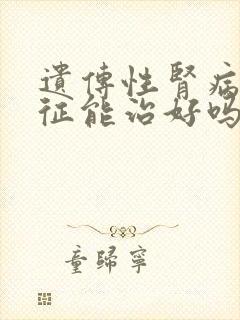 遺傳性腎病
征能治好吗
童歸寧